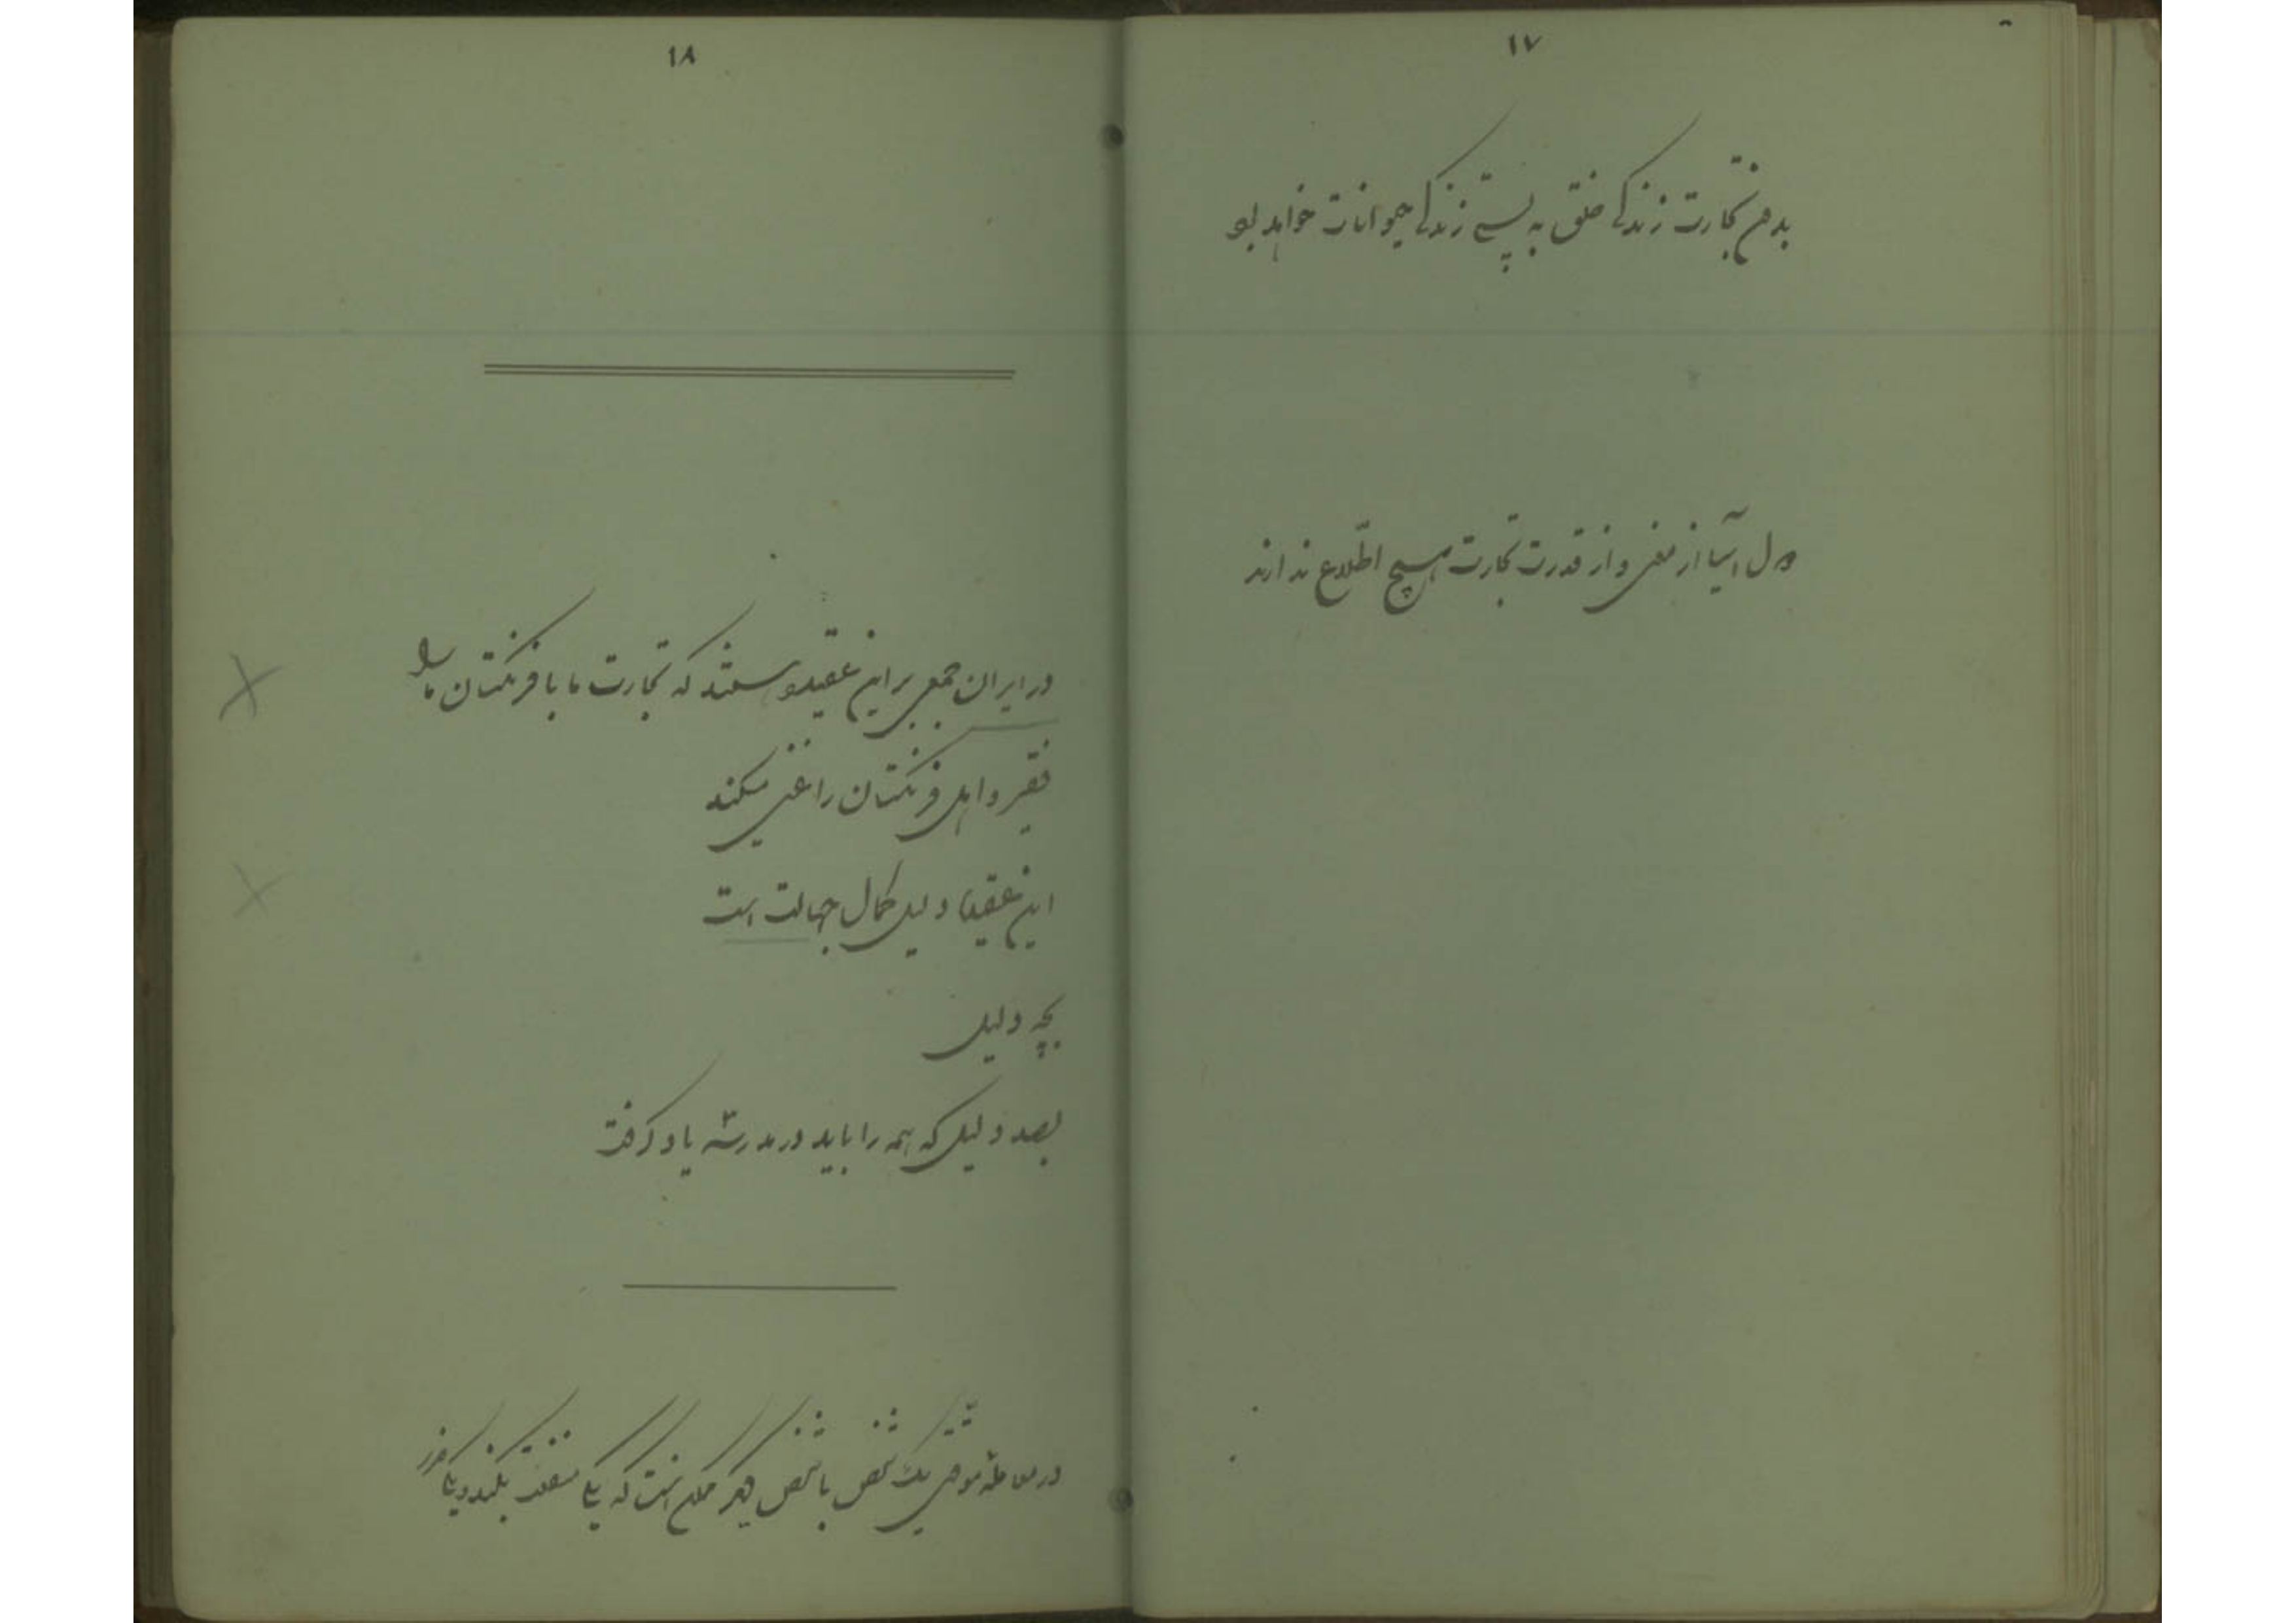 ۱۷
بدون تجارت زندگی خلق به پستی زندگی حیوانات خواهد بود
دول آسیا از معنی و از قدرت تجارت هیچ اطلاع ندارند
۱۸
در ایران جمعی بر این عقیده هستند که تجارت ما با فرنگستان ما را
فقیر و اهل فرنگستان را غنی میکند
این عقیده دلیل کمال جهالت است
بچه دلیل
بصد دلیل که همه را باید در مدرسه یاد گرفت
در معامله موقتی یک شخص با شخص دیگر ممکن است که یکی منفعت بکند و یکی ضرر